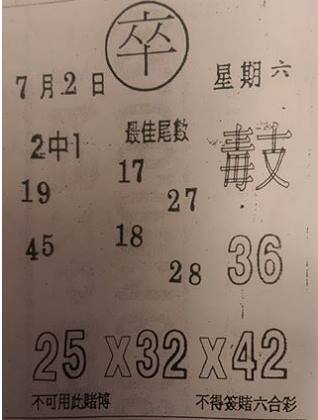 卒
7月2日 星期六
2中1 最佳尾數
19 17 27
45 18 28 36
25 X 32 X 42
不可用此賭博 不得簽賭六合彩